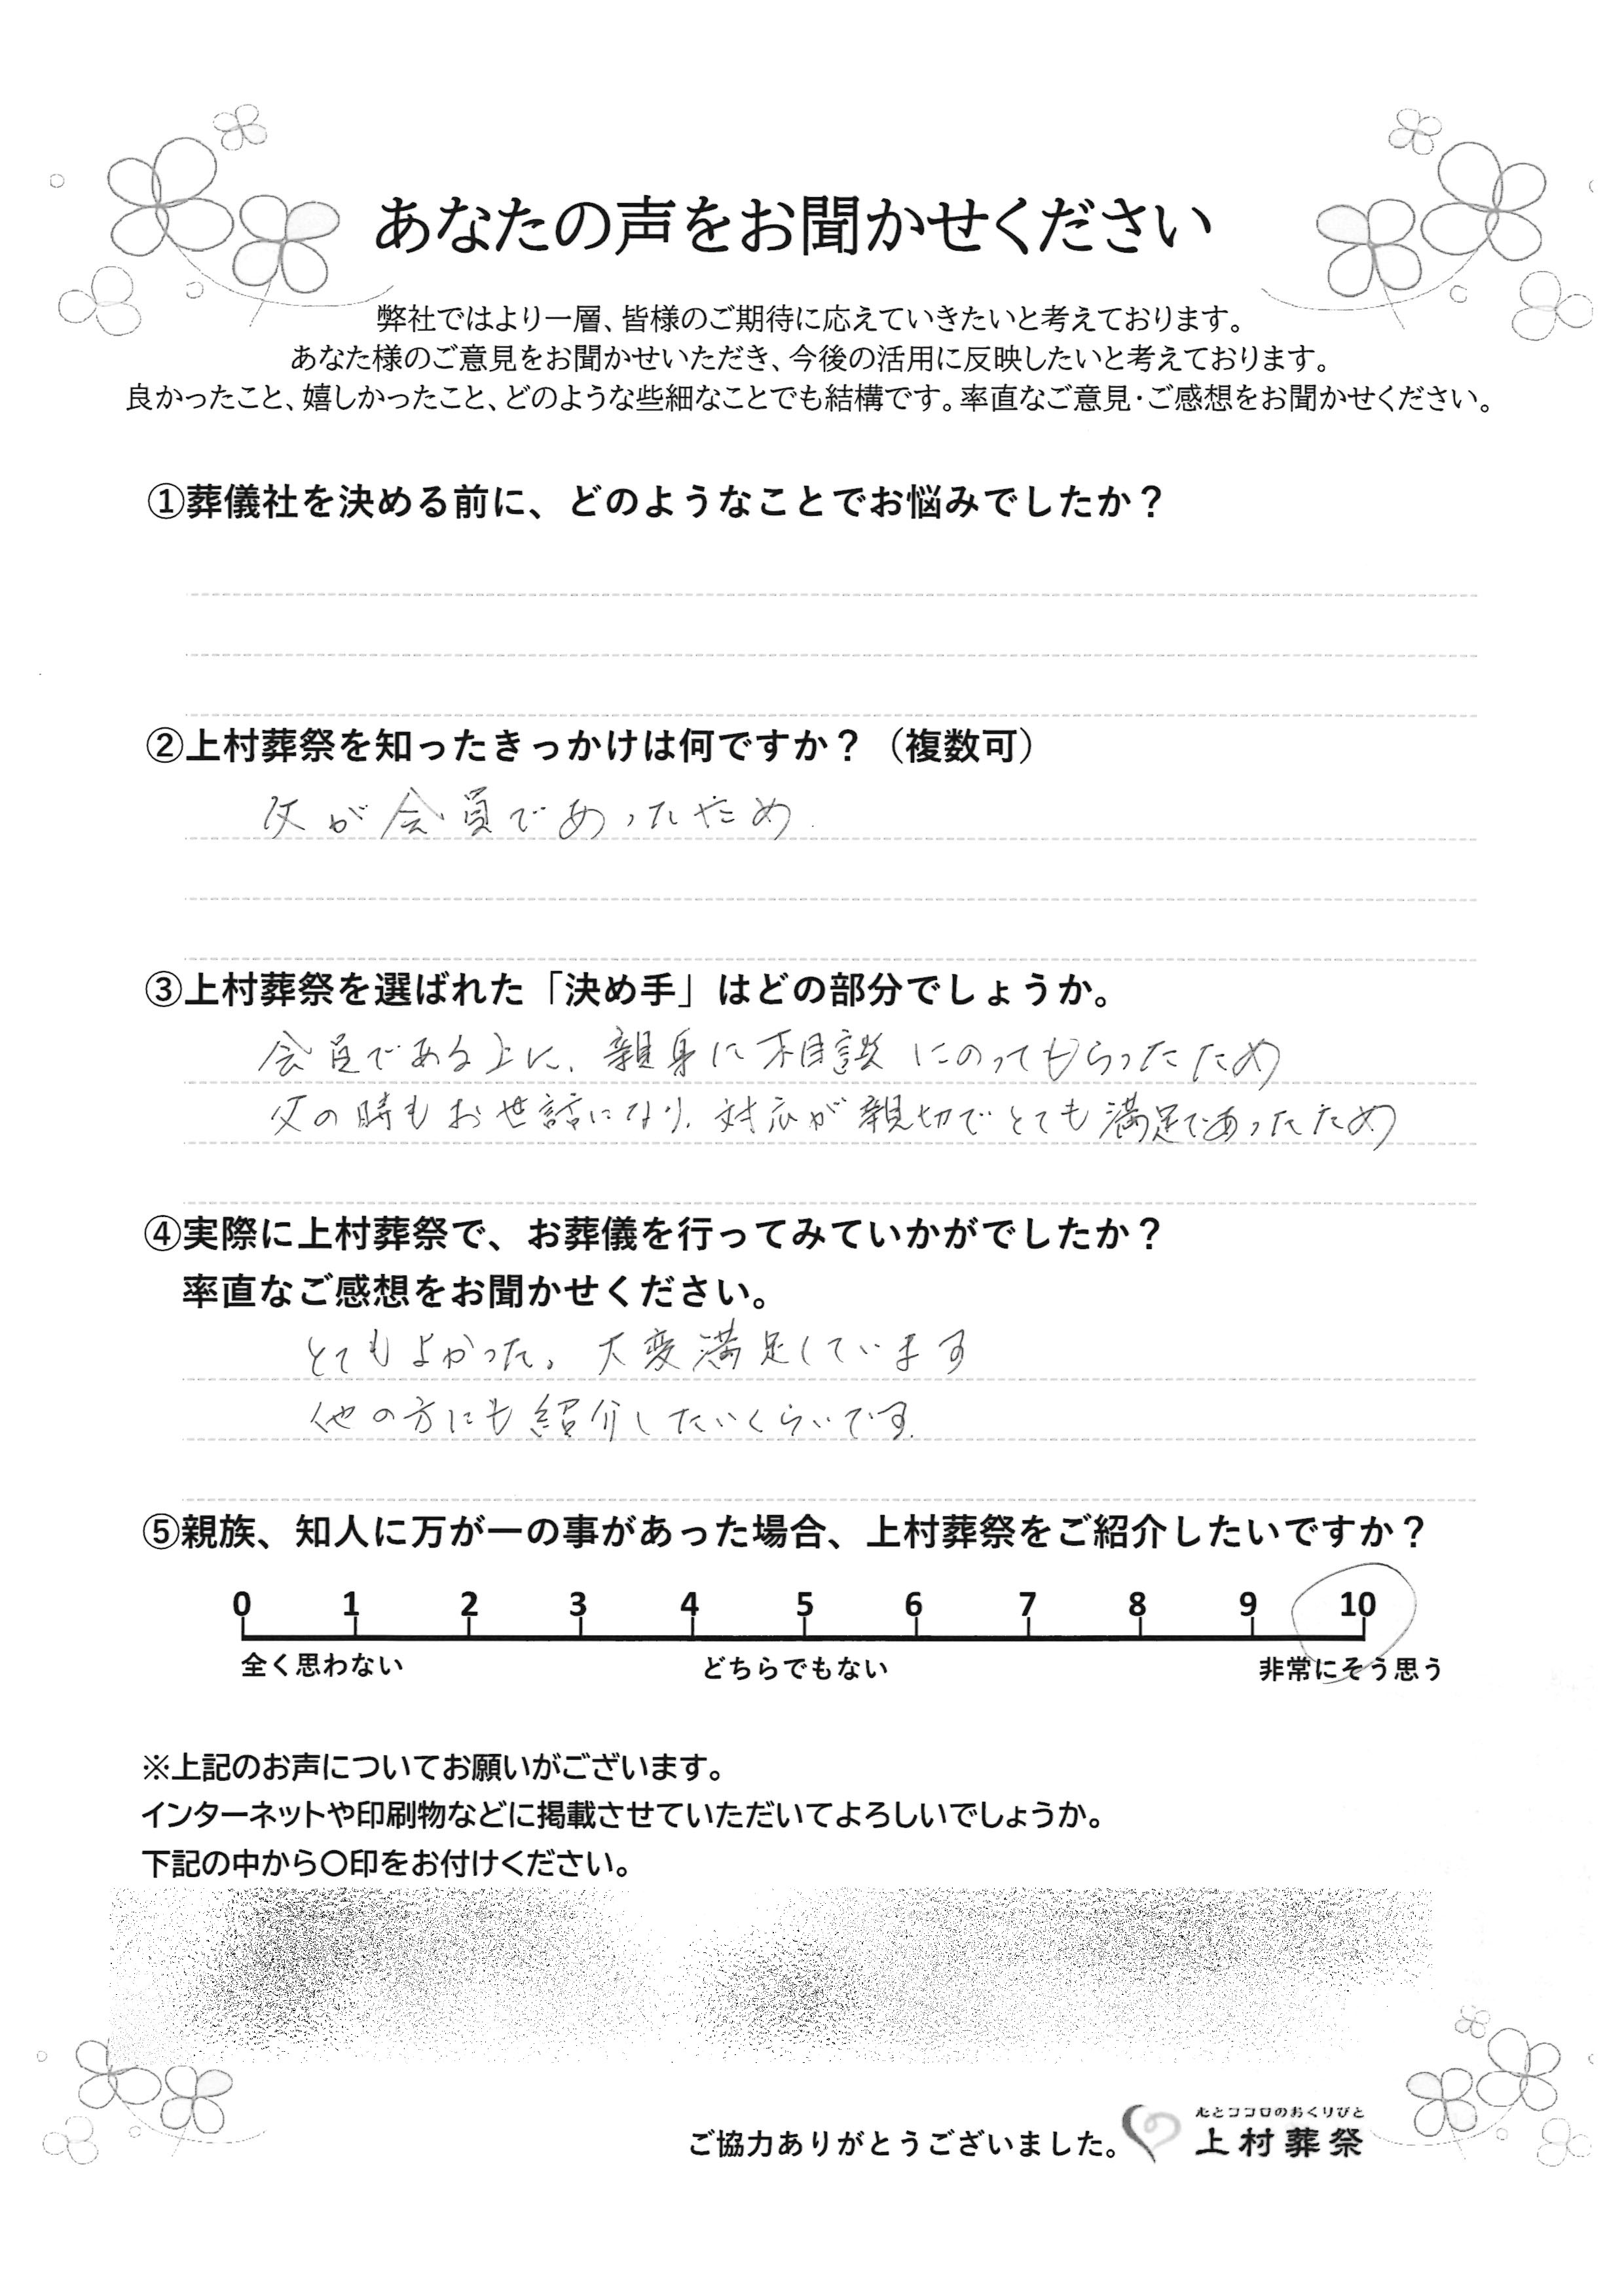 あなたの声をお聞かせください
弊社ではより一層、皆様のご期待に応えていきたいと考えております。
あなた様のご意見をお聞かせいただき、今後の活用に反映したいと考えております。
良かったこと、嬉しかったこと、どのような些細なことでも結構です。率直なご意見・ご感想をお聞かせください。
①葬儀社を決める前に、どのようなことでお悩みでしたか？
②上村葬祭を知ったきっかけは何ですか？（複数可）
父が会員であったため.
③上村葬祭を選ばれた「決め手」はどの部分でしょうか。
会員である上に、親身に相談にのってもらったため
父の時もお世話になり、対応が親切でとても満足であったため
④実際に上村葬祭で、お葬儀を行ってみていかがでしたか？
率直なご感想をお聞かせください。
とてもよかった。大変満足しています
他の方にも紹介したいくらいです.
⑤親族、知人に万が一の事があった場合、上村葬祭をご紹介したいですか？
0 1 2 3 4 5 6 7 8 9 10
全く思わない どちらでもない 非常にそう思う
※上記のお声についてお願いがございます。
インターネットや印刷物などに掲載させていただいてよろしいでしょうか。
下記の中から〇印をお付けください。
心とココロのおくりびと
ご協力ありがとうございました。上村葬祭